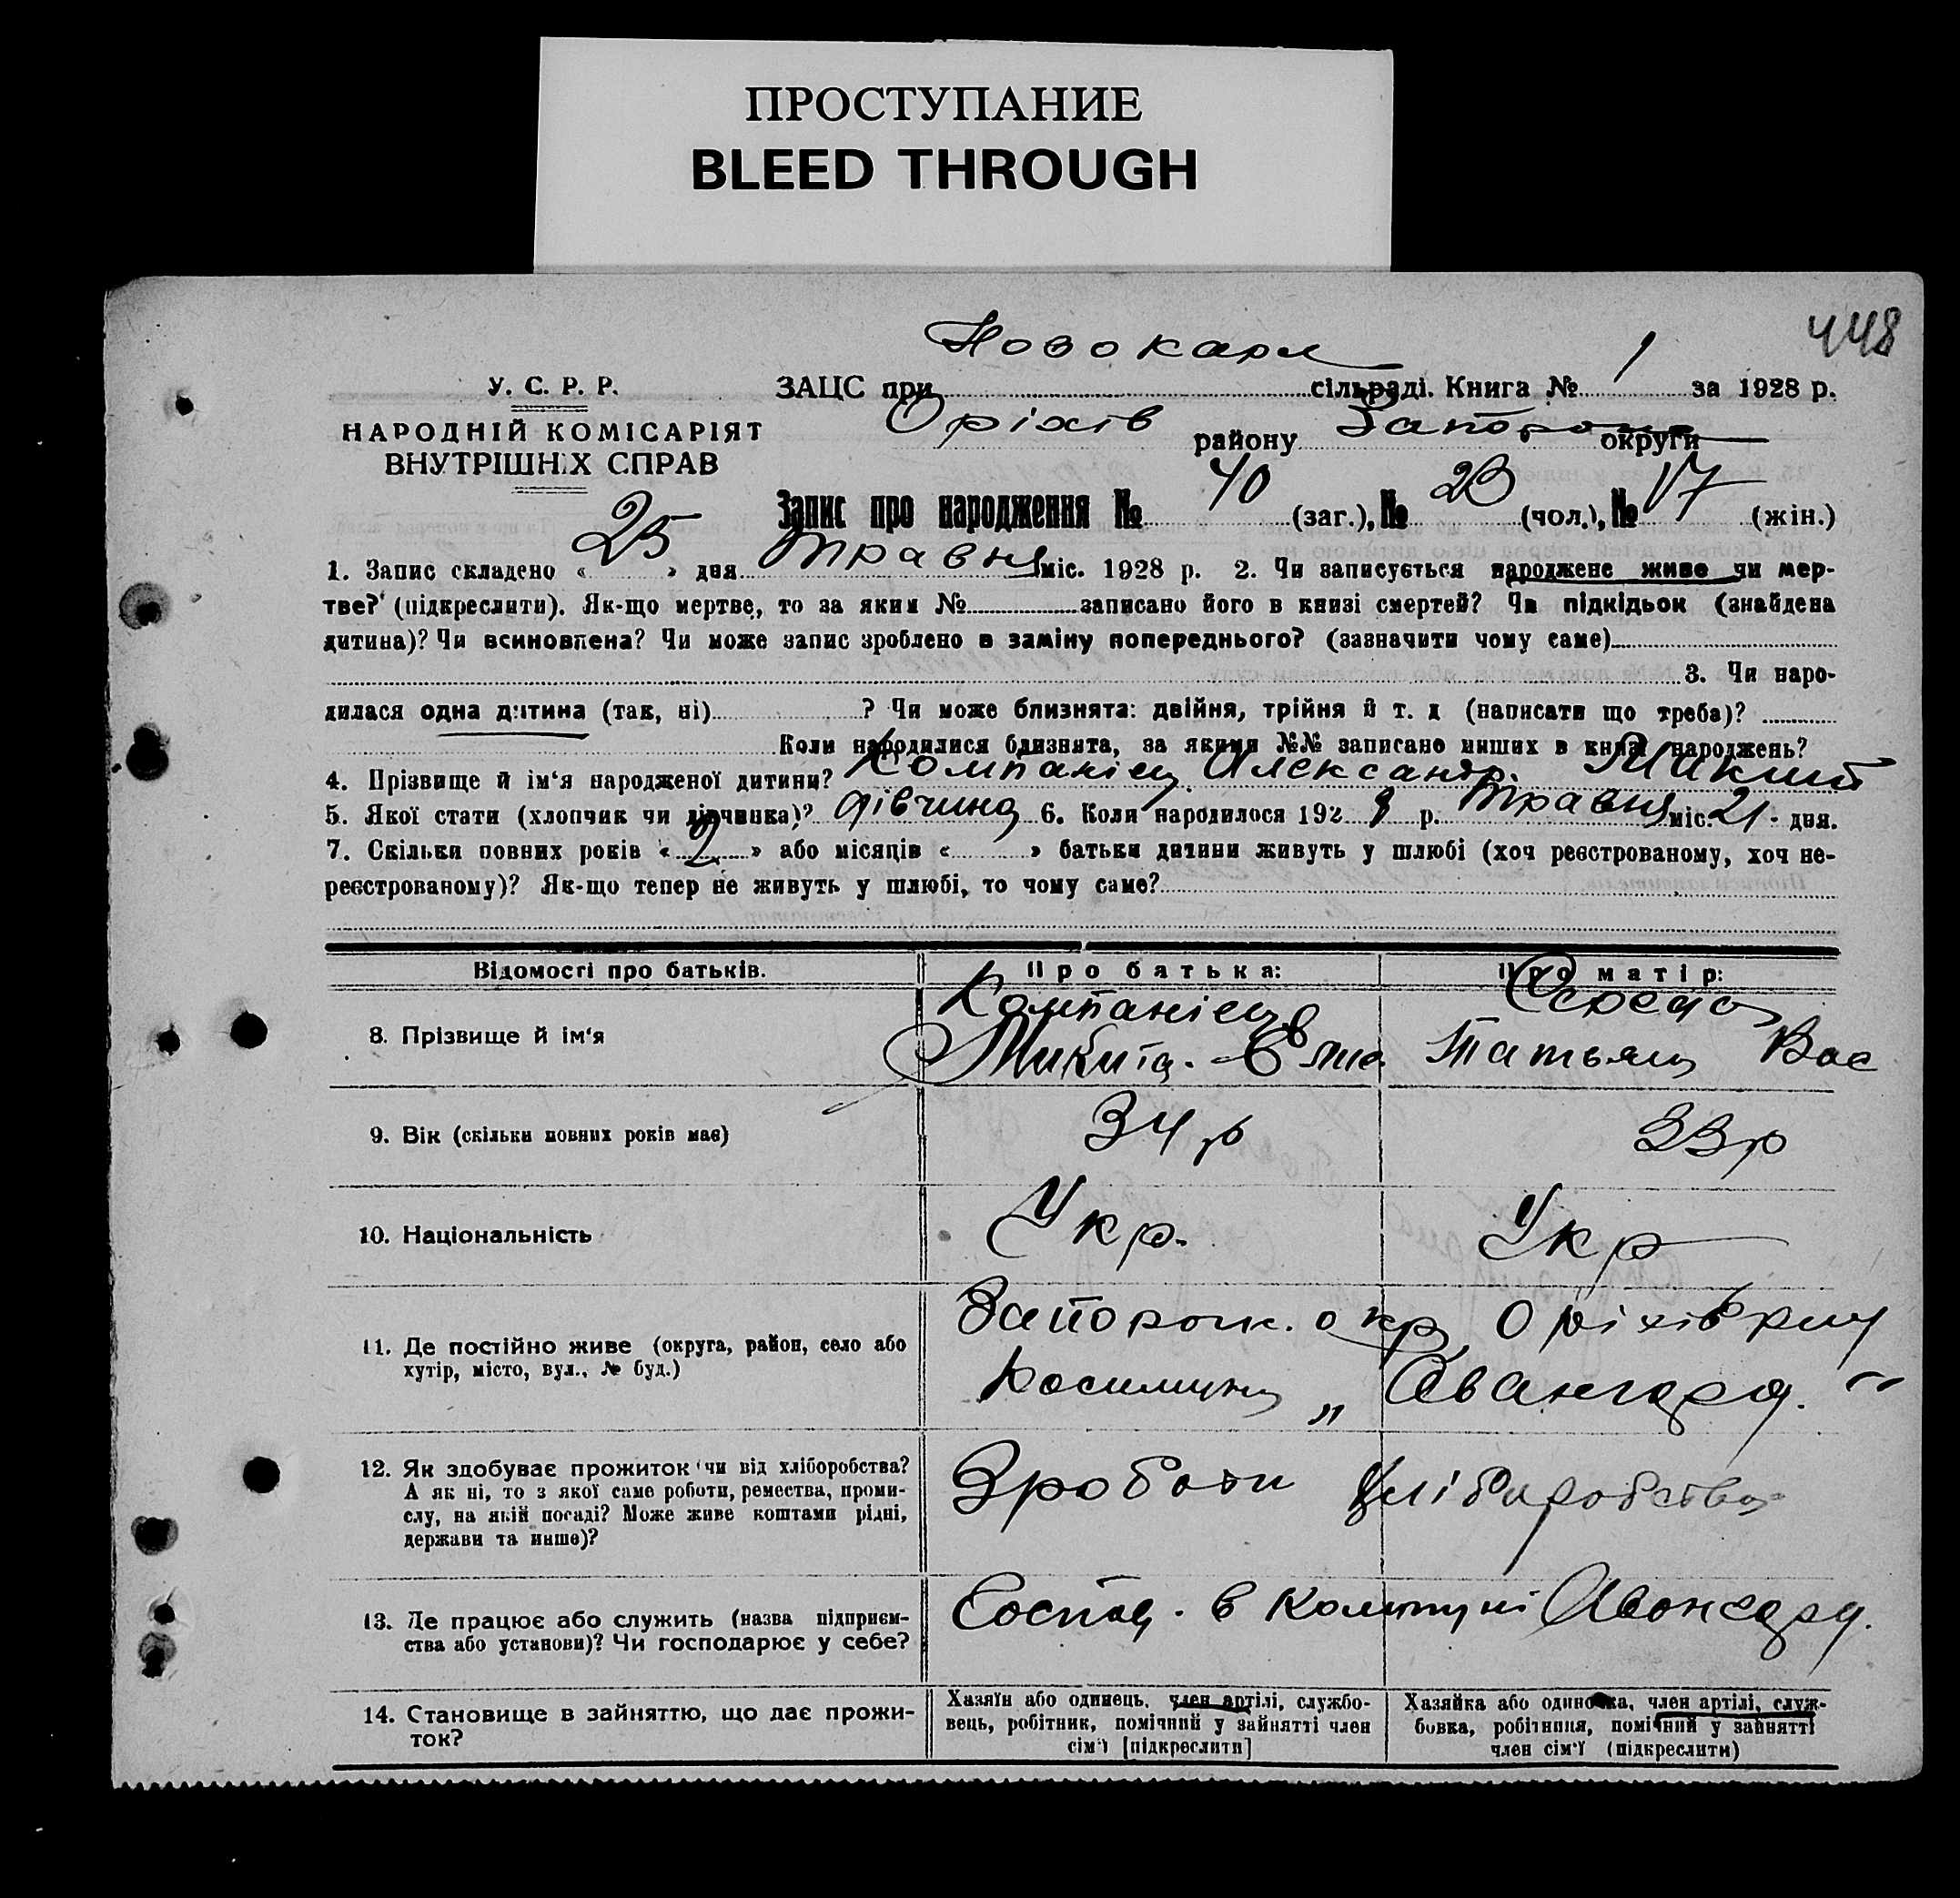 ПРОСТУПАНИЕ
BLEED THROUGH
448
Новокарл
У. С. Р. Р.
ЗАЦС при сільраді. Книга № 1 за 1928 р.
НАРОДНІЙ КОМІСАРІЯТ
ВНУТРІШНІХ СПРАВ
Оріхів району Запорож округи
Запис про народження № 40 (заг.), № 23 (чол.), № 17 (жін.)
1. Запис складено « 25 » дня травня міс. 1928 р. 2. Чи записується народжене живе чи мер-
тве? (підкреслити). Як-що мертве, то за яким № записано його в книзі смертей? Чи підкідьок (знайдена
дитина)? Чи всиновлена? Чи може запис зроблено в заміну попереднього? (зазначити чому саме)
3. Чи наро-
дилася одна дитина (так, ні) ? Чи може близнята: двійня, трійня й т. д (написати що треба)?
Коли народилися близнята, за якими №№ записано инших в книзі народжень?
4. Прізвище й ім‘я народженої дитини? Компанієц Александр. Микит
5. Якої стати (хлопчик чи дівчинка)? дівчина 6. Коли народилося 1928 р. травня міс. 21 дня.
7. Скільки повних років « 2 » або місяців « » батьки дитини живуть у шлюбі (хоч реєстрованому, хоч не-
реєстрованому)? Як-що тепер не живуть у шлюбі, то чому саме?
Відомості про батьків. Про батька: Про матір:
8. Прізвище й ім‘я Компанієц
Микита. Татьяна Вас
9. Вік (скільки повних років має) 34 р 33 р
10. Національність Укр. Укр
11. Де постійно живе (округа, район, село або
хутір, місто, вул., № буд.)
Запорож. окр Оріхів
„ Авангард. "
12. Як здобуває прожиток чи від хліборобства?
А як ні, то з якої саме роботи, ремества, проми-
слу, на якій посаді? Може живе коштами рідні,
держави та инше)?
Зроботи хліборобства
13. Де працює або служить (назва підприєм-
ства або установи)? Чи господарює у себе?
Господ. в комуні Авангард.
14. Становище в зайняттю, що дає прожи-
ток?
Хазяїн або одинець, член артілі, службо-
вець, робітник, помічний у зайнятті член
сім‘ї [підкреслити]
Хазяйка або одиночка, член артілі, служ-
бовка, робітниця, помічний у зайнятті
член сім‘ї (підкреслити)